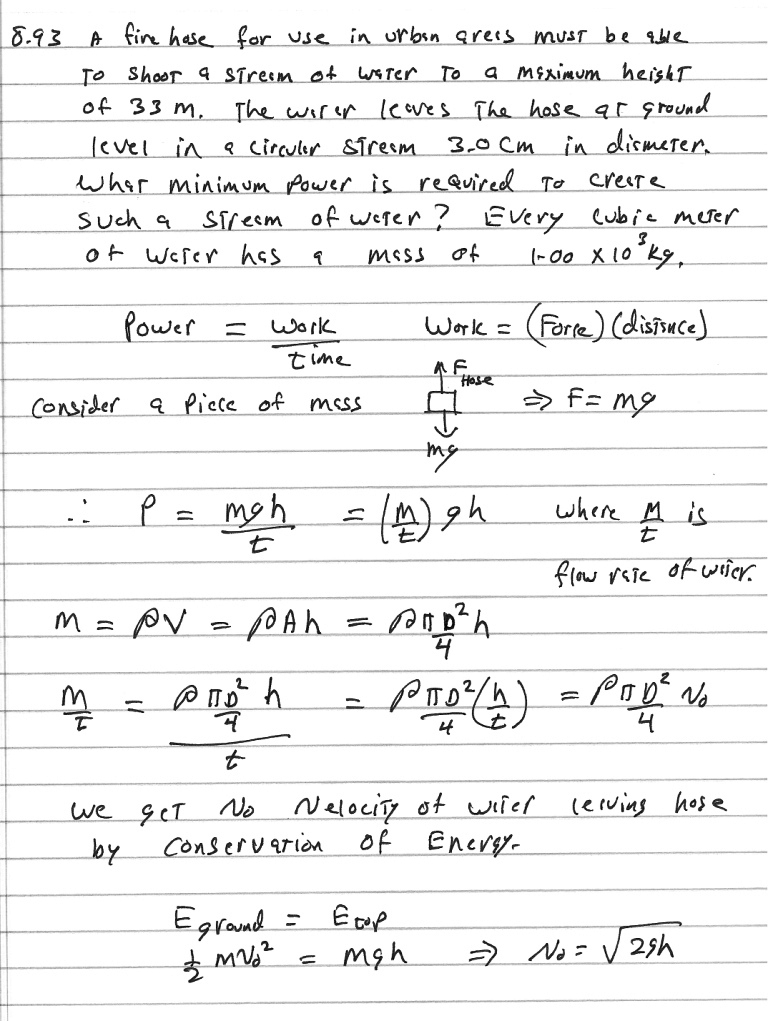 8.93 A fire hose for use in urban areas must be able
to shoot a stream of water to a maximum height
of 33 m. The water leaves the hose at ground
level in a circular stream 3.0 cm in diameter.
What minimum power is required to create
such a stream of water? Every cubic meter
of water has a mass of 1.00 x 10³ kg.
Power = Work / time    Work = (Force)(distance)
Consider a piece of mass    F Hose    mg    ⇒ F = mg
∴ P = mgh / t = (M/t) gh    where M/t is
flow rate of water.
M = ρV = ρAh = ρ πD²/4 h
M/t = (ρ πD²/4 h) / t = ρ πD²/4 (h/t) = ρ πD²/4 v₀
We get v₀ velocity of water leaving hose
by conservation of Energy.
E ground = E top
½ m v₀² = mgh ⇒ v₀ = √2gh